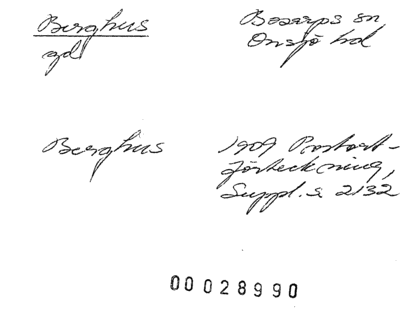 Berghus
gd
Bosarps sn
Onsjö hd
Berghus
1909 Postort-
förteckning,
Suppl. s 2132
00028990